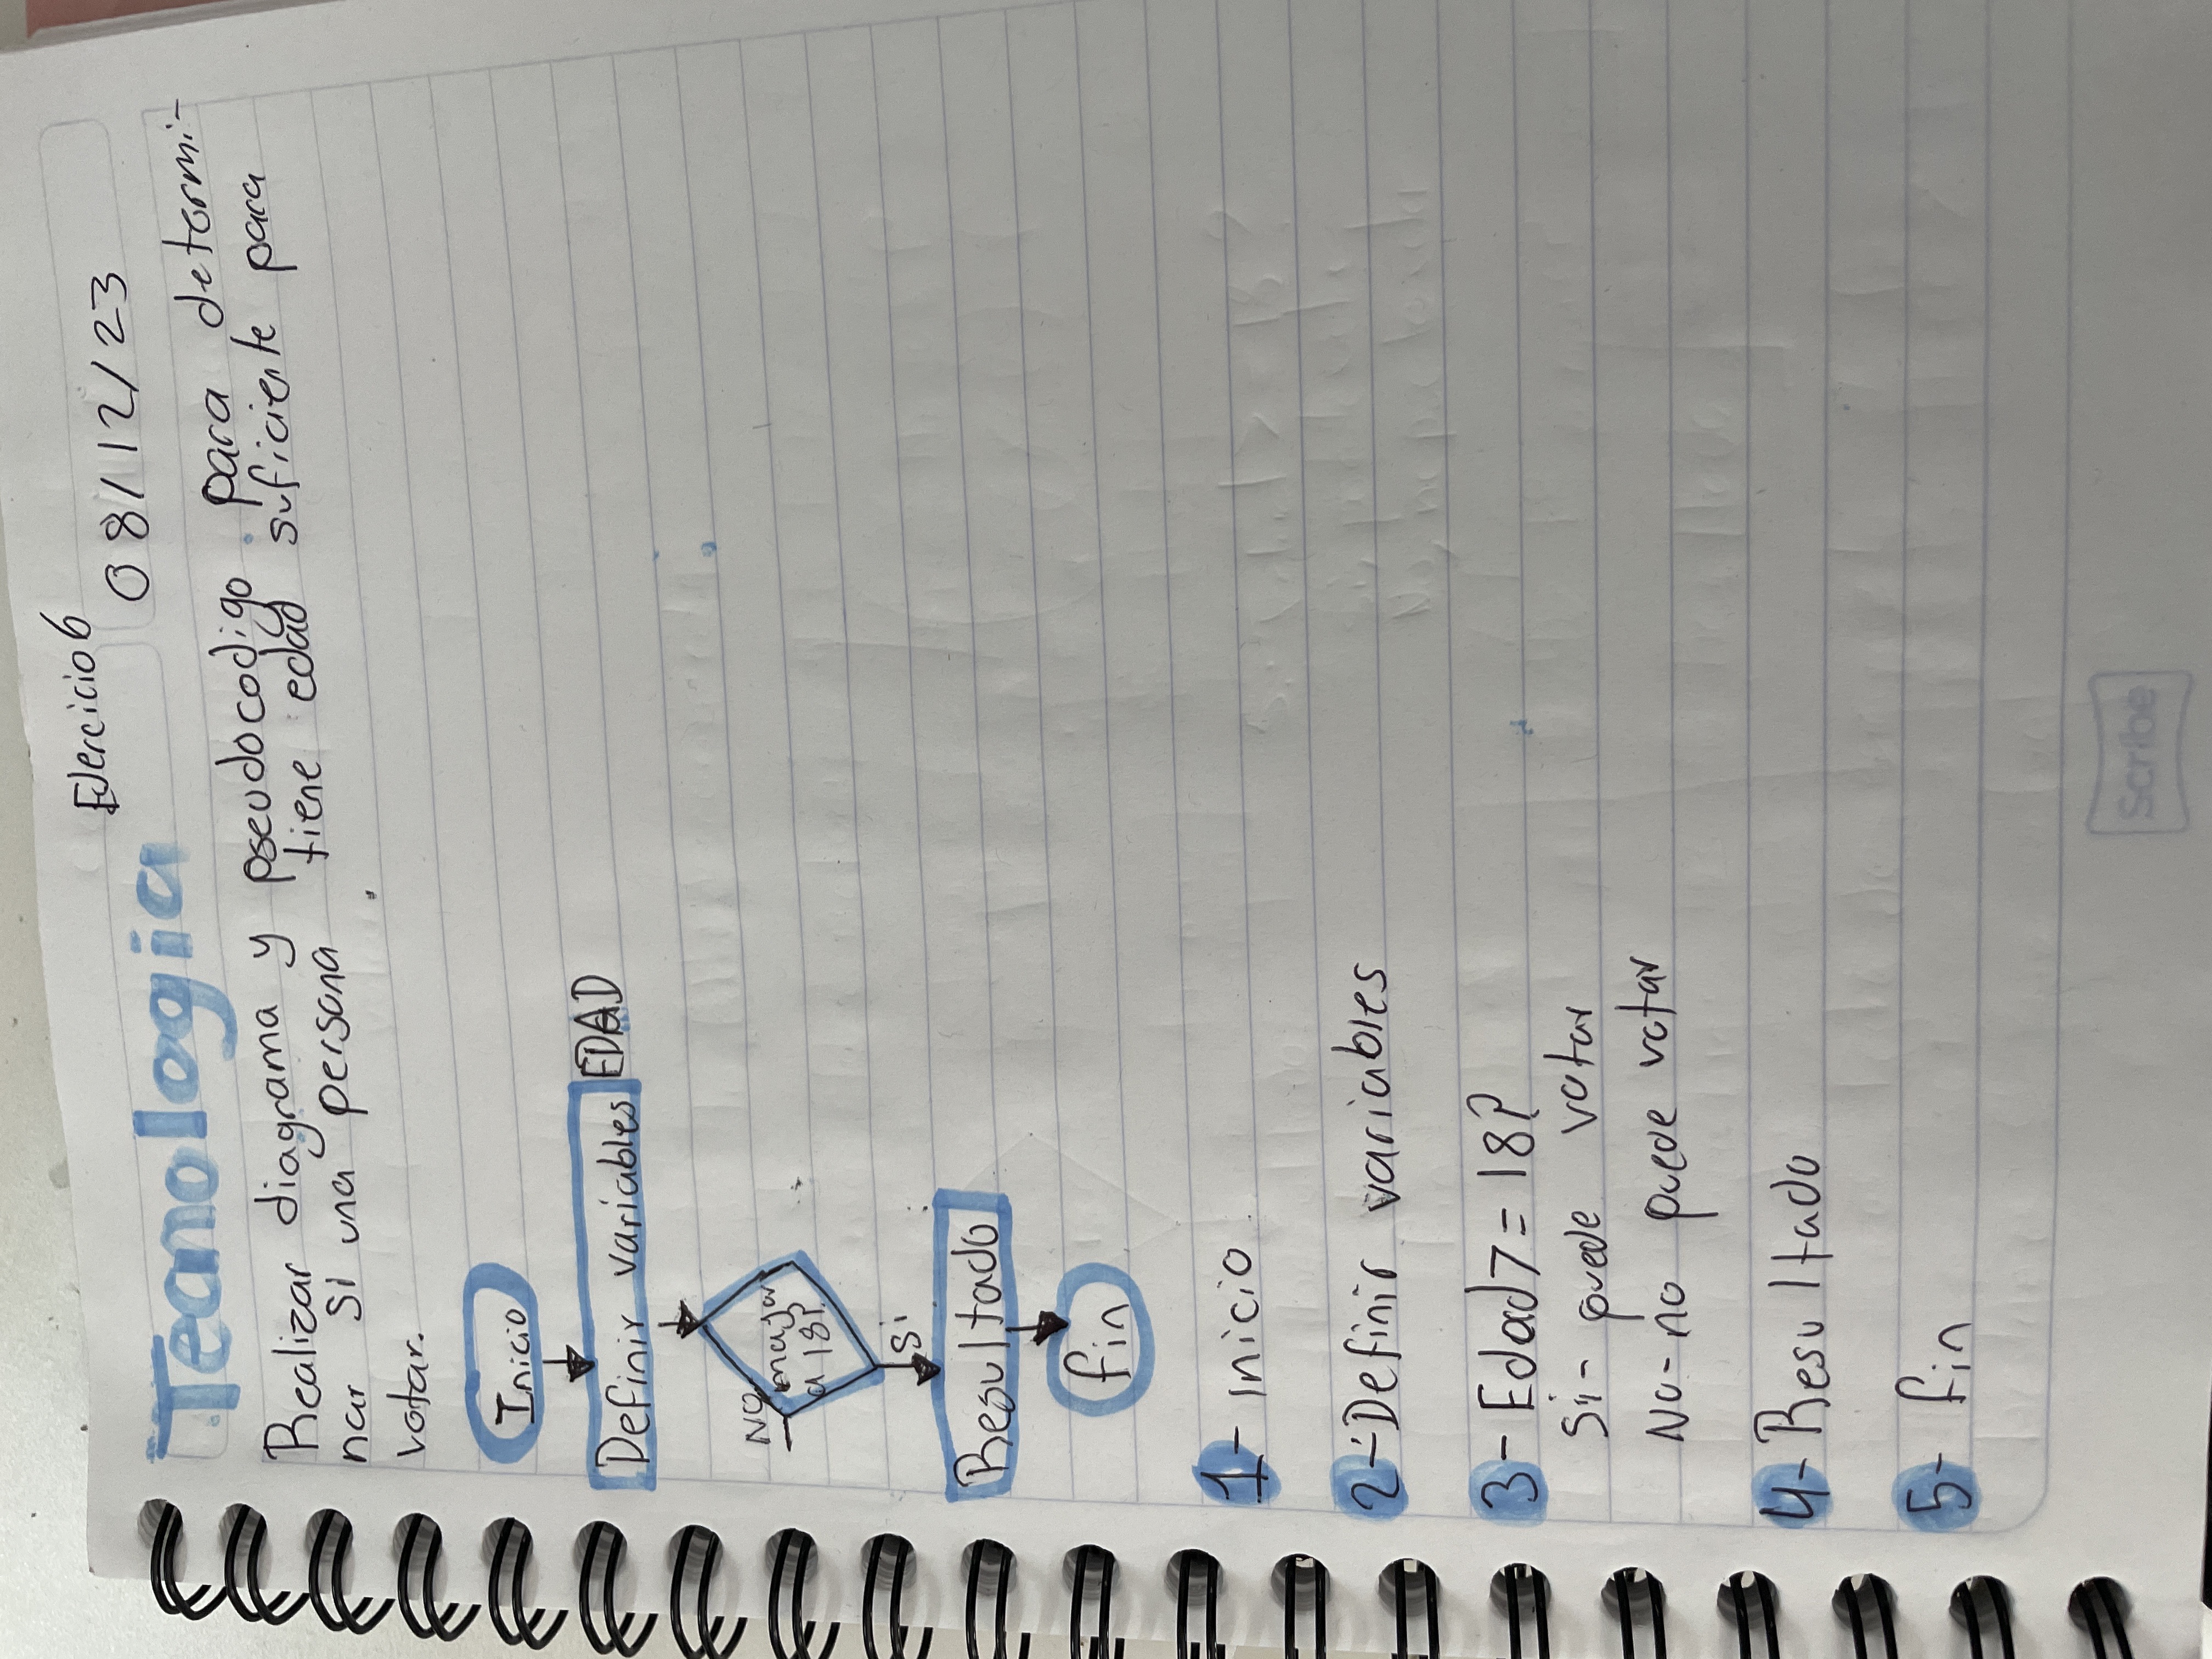 Ejercicio 6
Tecnologia
08/12/23
Realizar diagrama y pseudocodigo para determi-
nar si una persona tiene edad suficiente para
votar.
Inicio
Definir variables EDAD
NO
mayor
a 18?
Si
Resultado
fin
1- Inicio
2- Definir variables
3- Edad >= 18?
Si- puede votar
No- no puede votar
4- Resultado
5- fin
Scribe